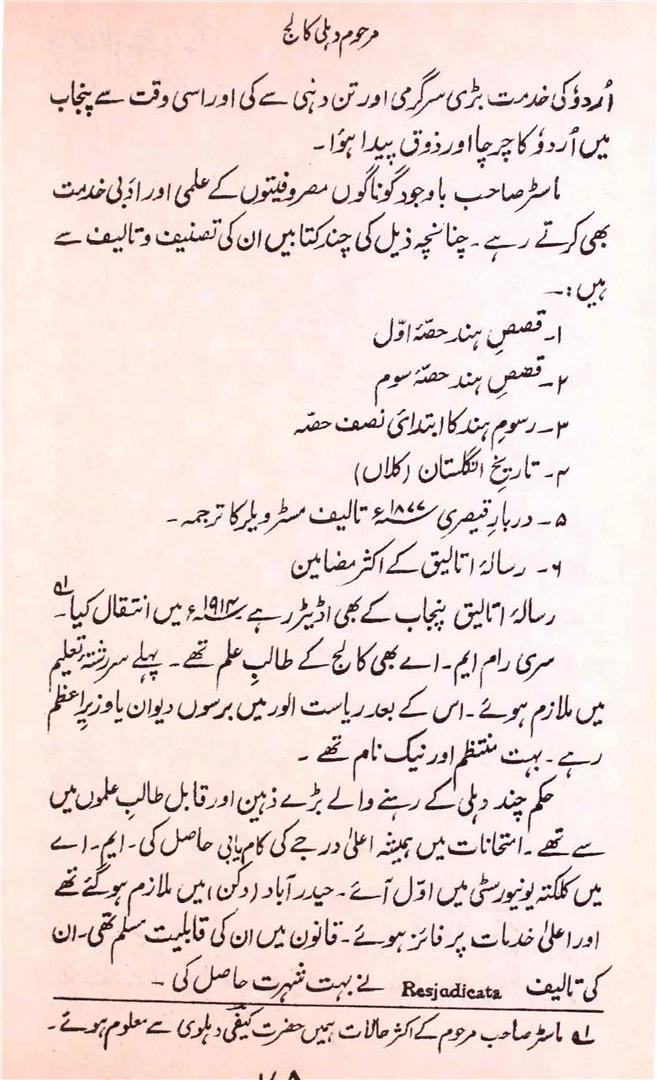 مرحوم دہلی کالج
اُردوٗ کی خدمت بڑی سرگرمی اور تن دہی سے کی اور اسی وقت سے پنجاب
میں اُردوٗ کا چرچا اور ذوق پیدا ہوٗا۔
ماسٹر صاحب باوجود گوناگوں مصروفیتوں کے علمی اور ادبی خدمت
بھی کرتے رہے۔ چنانچہ ذیل کی چند کتابیں ان کی تصنیف و تالیف سے
ہیں:۔
۱۔ قصصِ ہند حصّۂ اوّل
۲۔ قصصِ ہند حصّۂ سوم
۳۔ رسومِ ہند کا ابتدائی نصف حصّہ
۴۔ تاریخِ انگلستان (کلاں)
۵۔ دربارِ قیصری ۱۸۷۷ء تالیف مسٹر ویلر کا ترجمہ۔
۶۔ رسالۂ اتالیق کے اکثر مضامین
رسالۂ اتالیق پنجاب کے بھی اڈیٹر رہے ۱۹۱۴ء میں انتقال کیا۔ ۱ے
سری رام ایم۔ اے بھی کالج کے طالبِ علم تھے۔ پہلے سررشتۂ تعلیم
میں ملازم ہوئے۔ اس کے بعد ریاست الور میں برسوں دیوان یا وزیرِ اعظم
رہے۔ بہت منتظم اور نیک نام تھے۔
حکم چند دہلی کے رہنے والے بڑے ذہین اور قابل طالبِ علموں میں
سے تھے۔ امتحانات میں ہمیشہ اعلیٰ درجے کی کام یابی حاصل کی۔ ایم۔ اے
میں کلکتہ یونیورسٹی میں اوّل آئے۔ حیدر آباد (دکن) میں ملازم ہو گئے تھے
اور اعلیٰ خدمات پر فائز ہوئے۔ قانون میں ان کی قابلیت مسلم تھی۔ ان
کی تالیف Resjudicata نے بہت شہرت حاصل کی۔
۱ے ماسٹر صاحب مرحوم کے اکثر حالات ہمیں حضرت کیفی دہلوی سے معلوم ہوئے۔